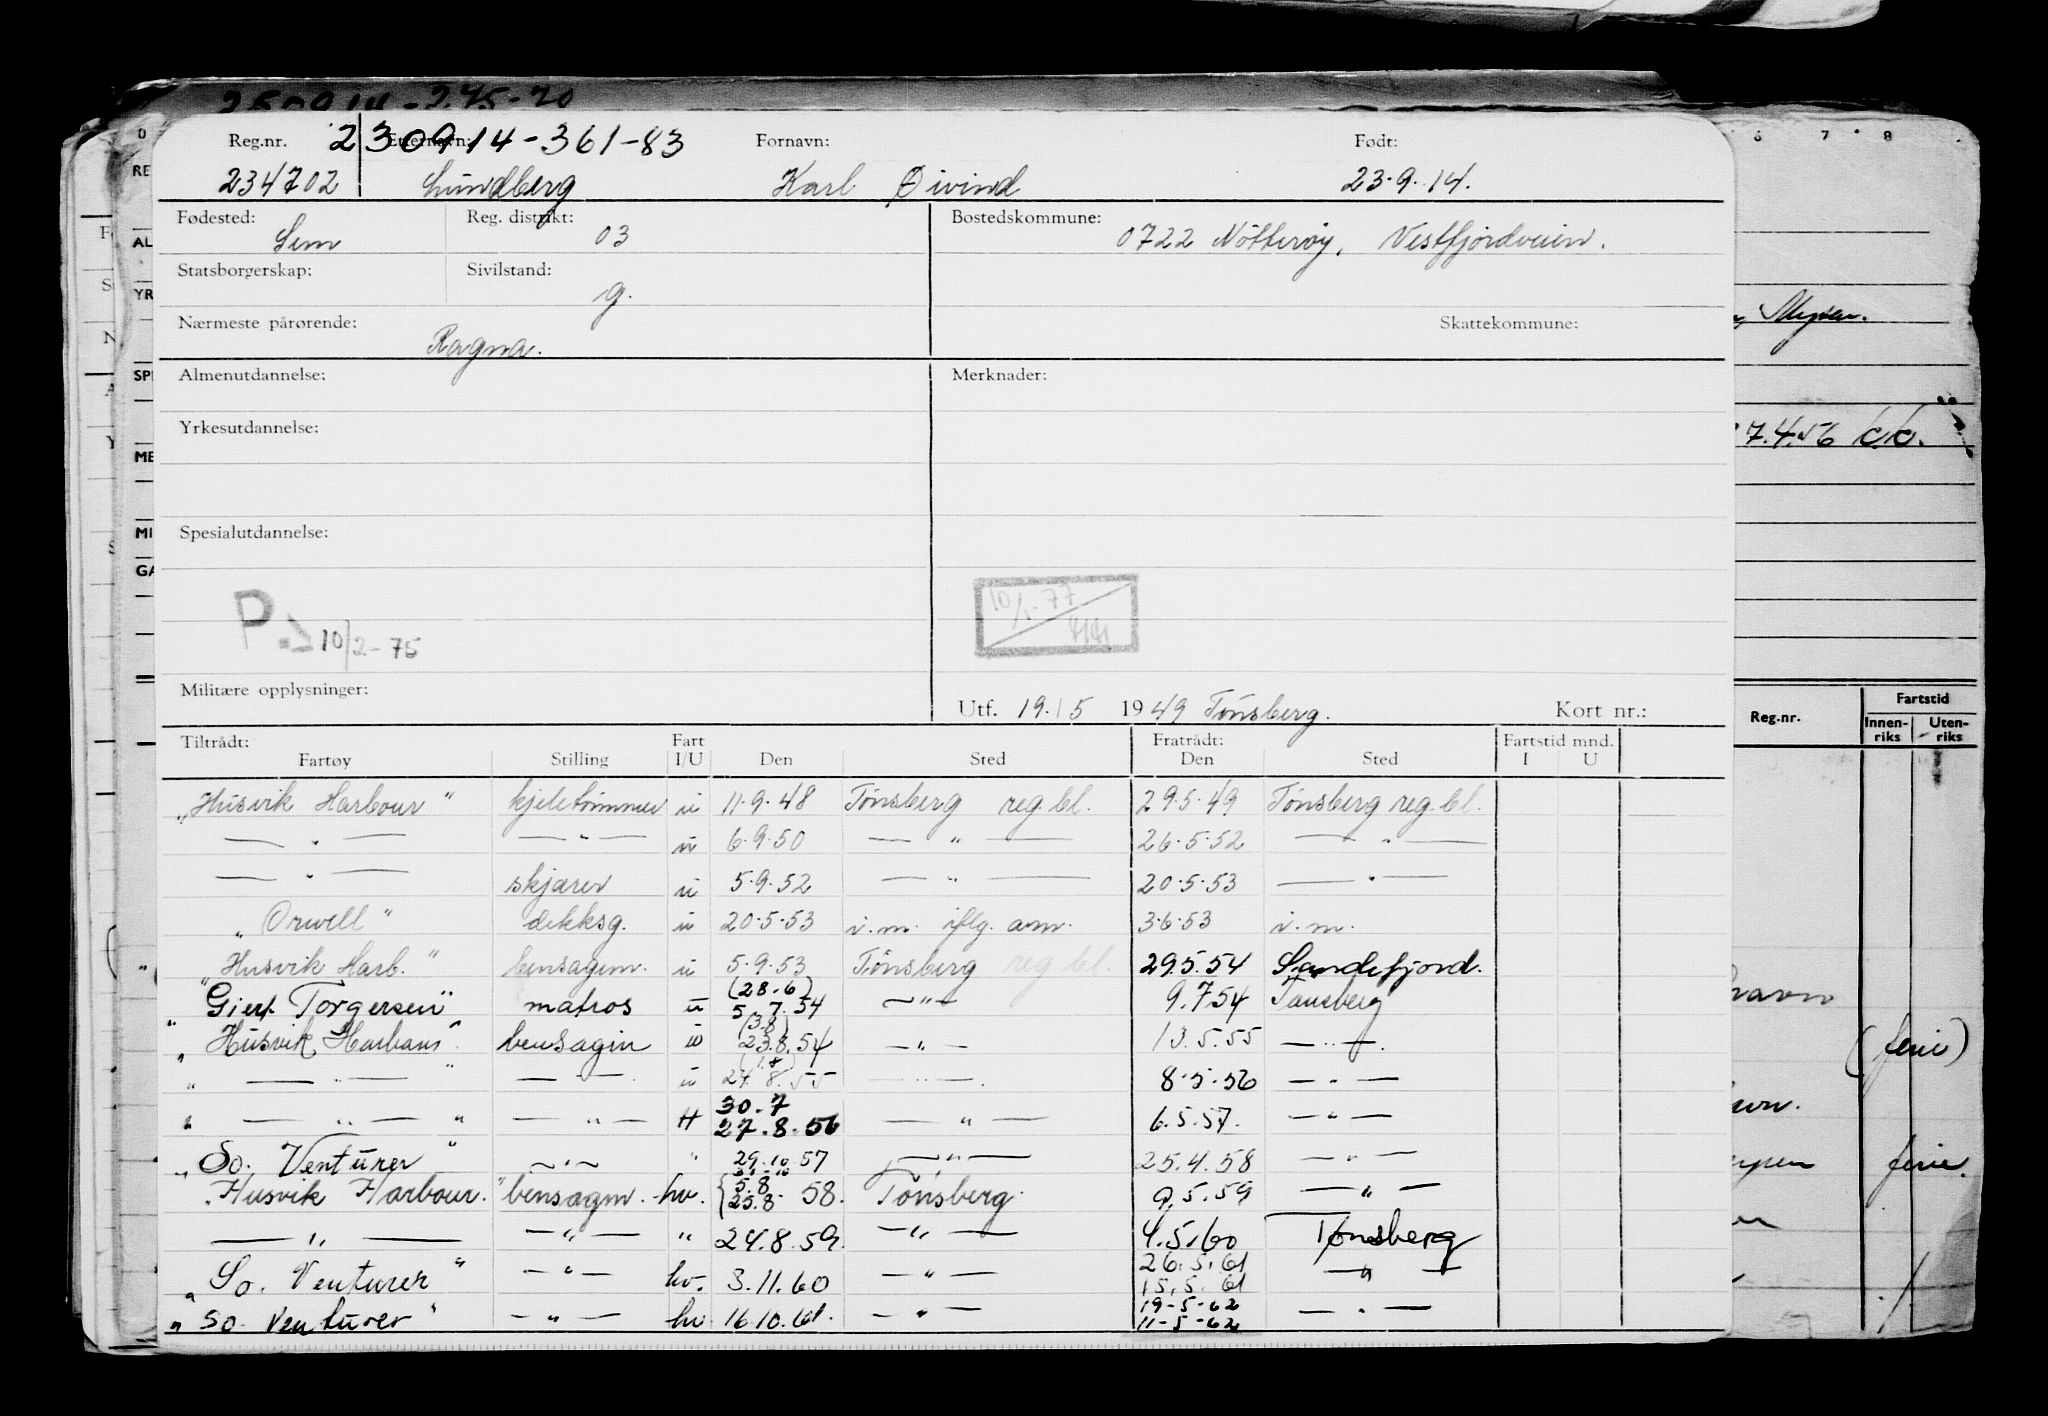 250914-245-70
Reg.nr. Etternavn: 230914-361-83 Fornavn: Født:
234702 Lundberg Karl Øivind 23.9.14.
Fødested: Reg. distrikt: Bostedskommune:
Sem 03 0722 Nötterøy, Vestfjordveien.
Statsborgerskap: Sivilstand:
g.
Nærmeste pårørende: Skattekommune:
Ragna.
Almenutdannelse: Merknader:
Yrkesutdannelse:
Spesialutdannelse:
P. 10/2-75
10/1-77
Militære opplysninger:
Utf. 19/5 1949 Tönsberg. Kort nr.:
Tiltrådt: Fart Fratrådt: Fartstid mnd.
Fartøy Stilling I/U Den Sted Den Sted I U
„Husvik Harbour" u 11.9.48 Tönsberg reg.bl. 29.5.49 Tönsberg reg.bl.
— " — — " — u 6.9.50 — " — 26.5.52 — " —
— " — skjærer u 5.9.52 — " — 20.5.53 — " —
„Orwell" dekksg. u 20.5.53 i.m. iflg. am. 3.6.53 i.m.
„Husvik Harb." bensagm. u 5.9.53 Tönsberg reg.bl. 29.5.54 Sandefjord.
(28.6)
„Giert Torgersen" matros u 5.7.54 — " — 9.7.54 Tönsberg
(3.8)
„Husvik Harbour" bensagm u 23.8.54 — " — 13.5.55 — " —.
(1.8)
„ — " — " — " — u 24.8.55 — " —. 8.5.56 — " —
30.7
„ — " — " — " — H 27.8.56 — " — 6.5.57. — " —
„So. Venturer" — " — " 29.10.57 — " — 25.4.58 — " —
„Husvik Harbour." bensagm. hv. {5.8 25.8 58. Tönsberg. 9.5.59 — " —
— " — — " — " 24.8.59. — " — 4.5.60 Tönsberg
„So. Venturer" — " — hv. 3.11.60 — " — 26.5.61 15.5.61 — " —
„So. Venturer" — " — hv 16.10.61. — " — 19-5-62 11-5-62 — " —
6 7 8
Mysen.
7.4.56
Reg.nr. Fartstid
Innen-riks Uten-riks
(ferie)
ferie.